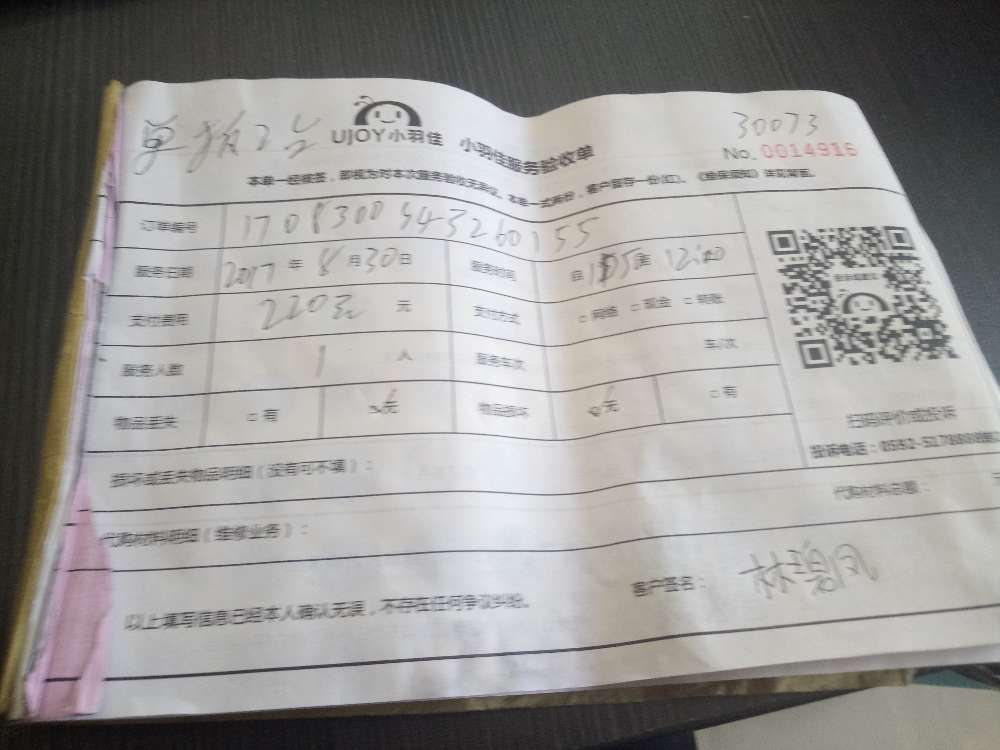 30073
UJOY小羽佳 小羽佳服务验收单 No. 0014916
本单一经核签，即视为对本次服务验收无异议。本单一式两份，客户留存一份(红)。《维保须知》详见背面。
订单编号
服务日期 2017 年 8 月 30 日 服务时间 自 至 12:00
支付费用 220元 元 支付方式 □ 网络 □ 现金 □ 转账
服务人数 1 人 服务车次 车/次
物品丢失 □ 有 □ 无 物品损坏 □ 无 □ 有
扫码评价或投诉
投诉电话：0592-5178888
损坏或丢失物品明细（没有可不填）：
代购材料明细（维修业务）： 代购材料总额：
以上填写信息已经本人确认无误，不存在任何争议纠纷。 客户签名： 林碧凤